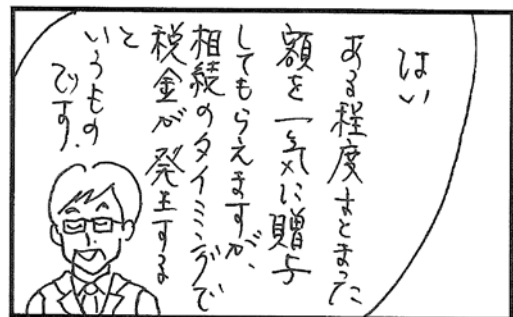 はい
ある程度まとまった
額を一気に贈与
してもらえますが、
相続のタイミングで
税金が発生する
と
いうもの
です。